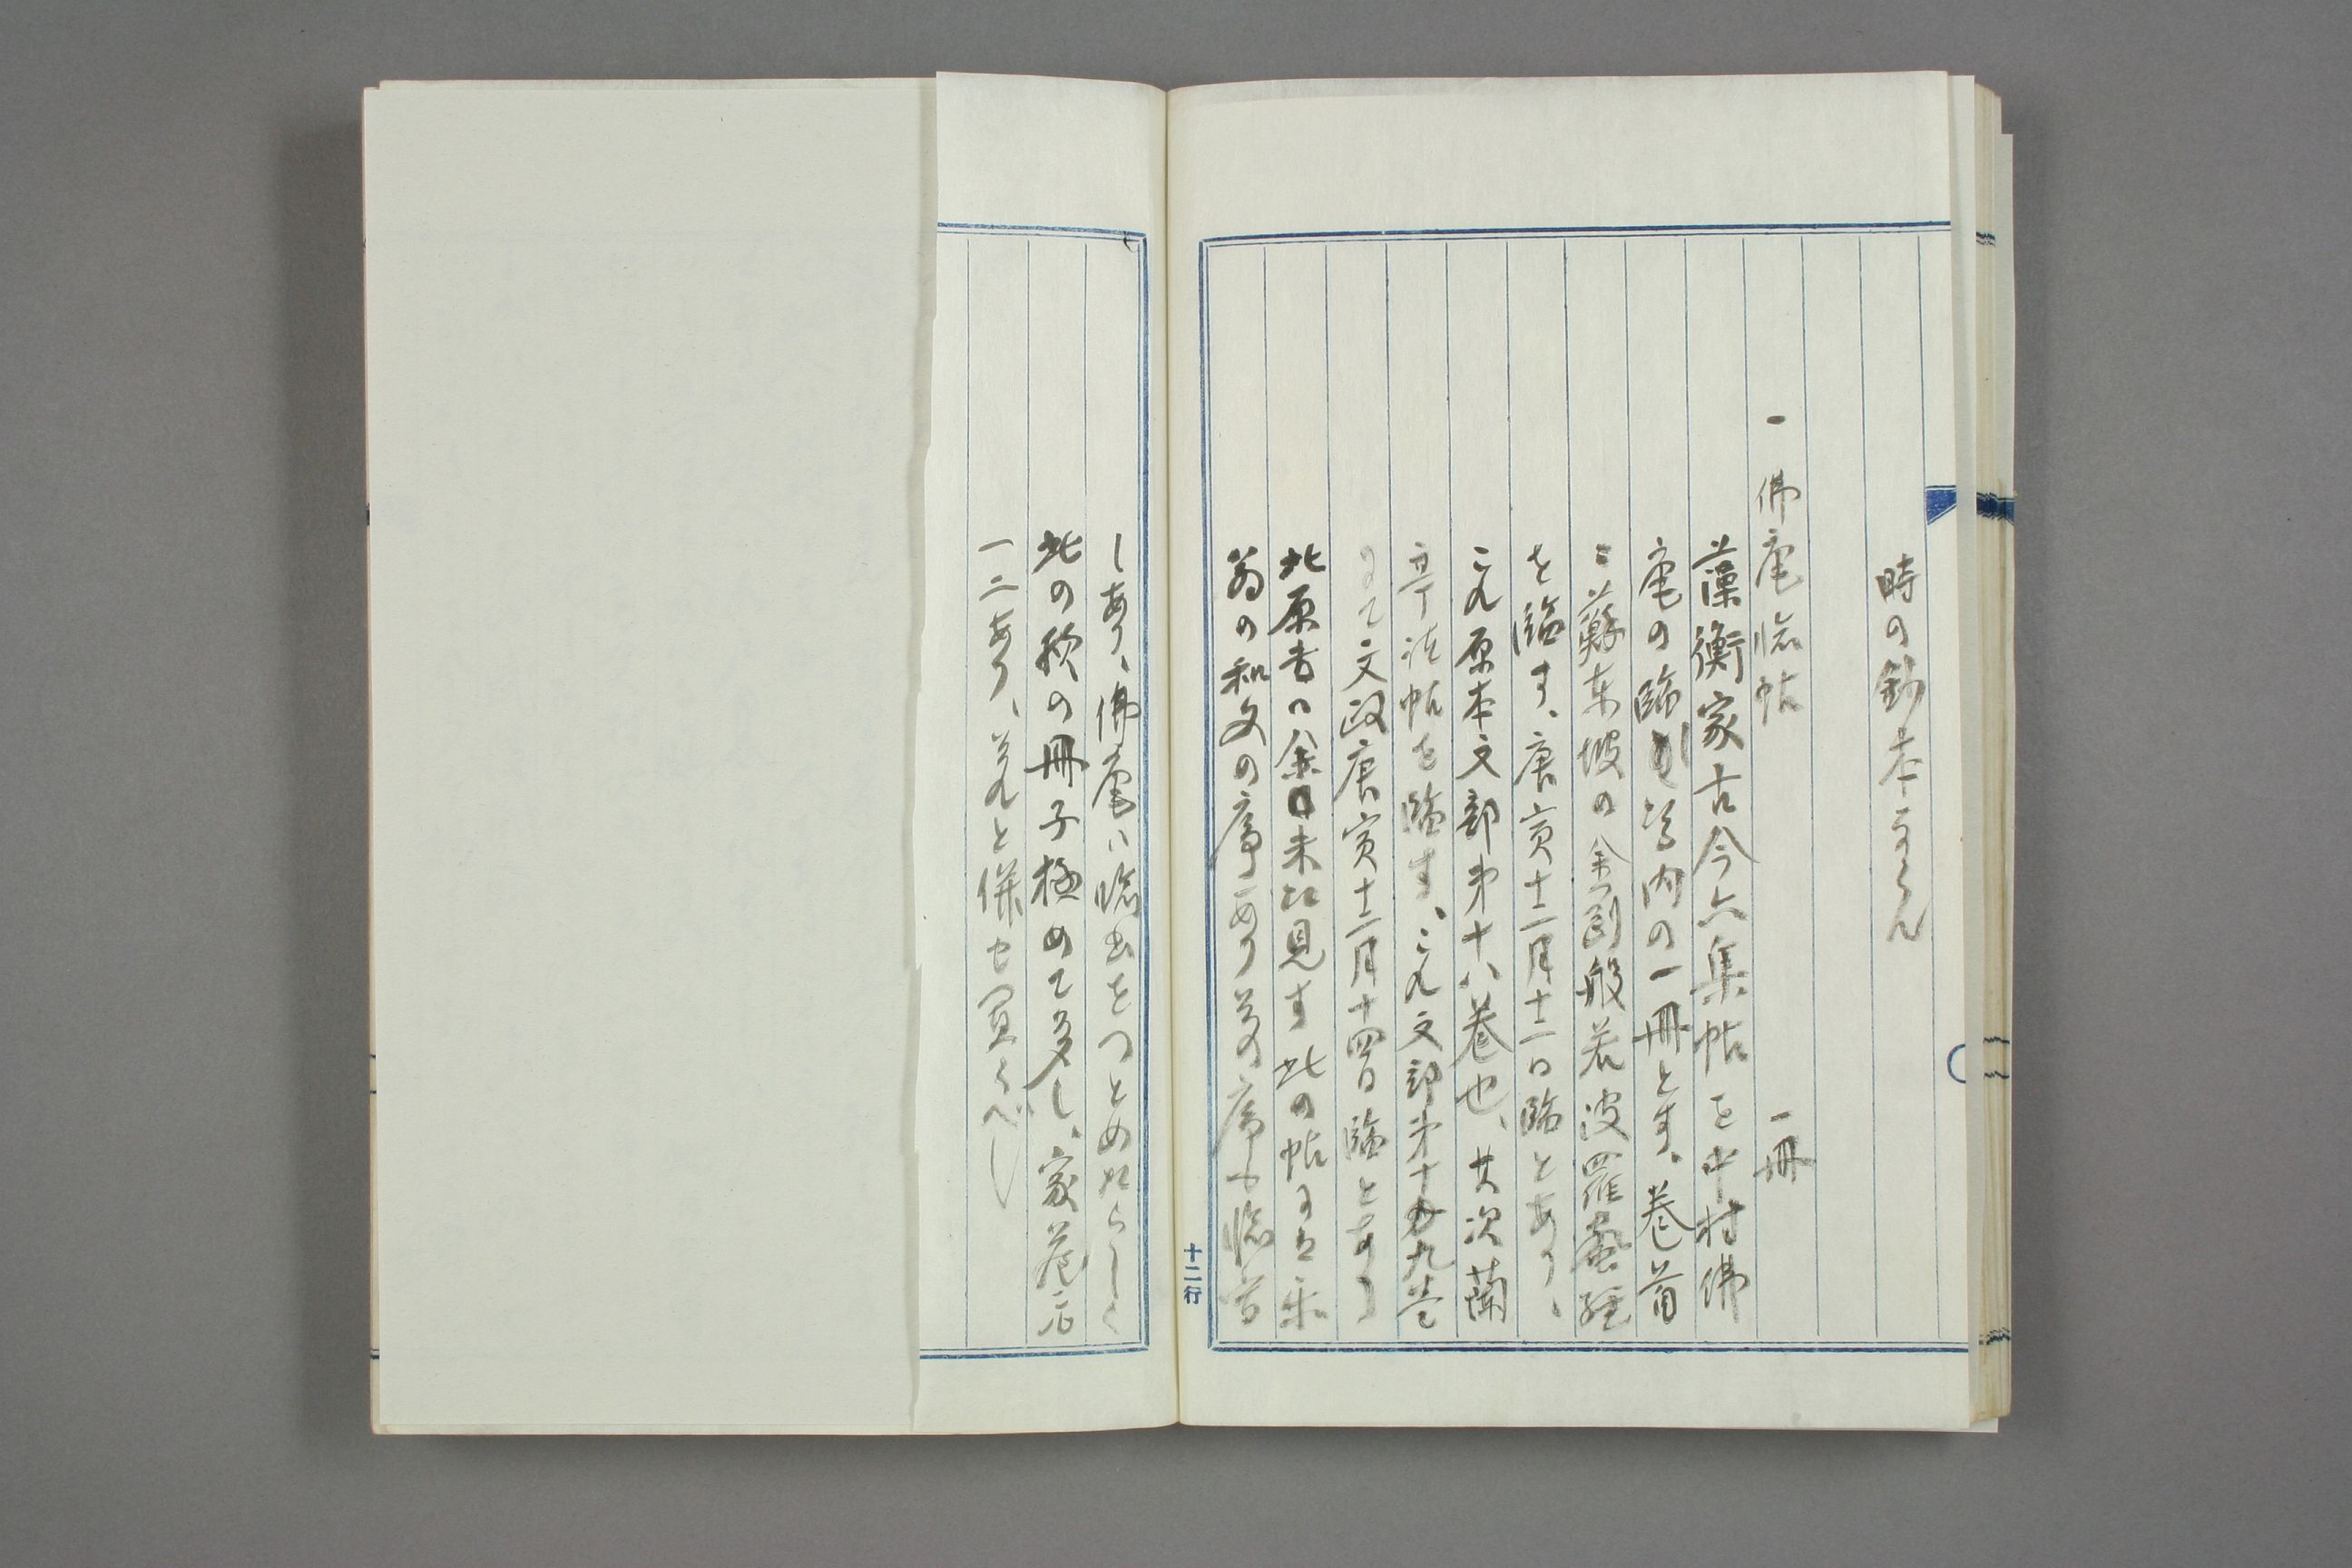 時の鈔本ならん
一 佛庵臨帖 一冊
藻衡家古今六集帖を中村佛
庵の臨
内の一冊とす、巻首
ニ蘇東坡の金剛般若波羅蜜経
を臨す、庚寅十二月十二日臨とあり、
これ原本文部第十八巻也、其次蘭
亭法帖を臨す、これ文部第十九巻
にて文政庚寅十二月十四日臨とあり
此原書ハ余未だ見す此の帖に
翁の和文の序あり其序も臨書
しあり、佛庵ハ臨書をつとめたらしく
此の種の冊子極めて多し、家蔵亦
一二あり、これと併せ見るべし
十二行